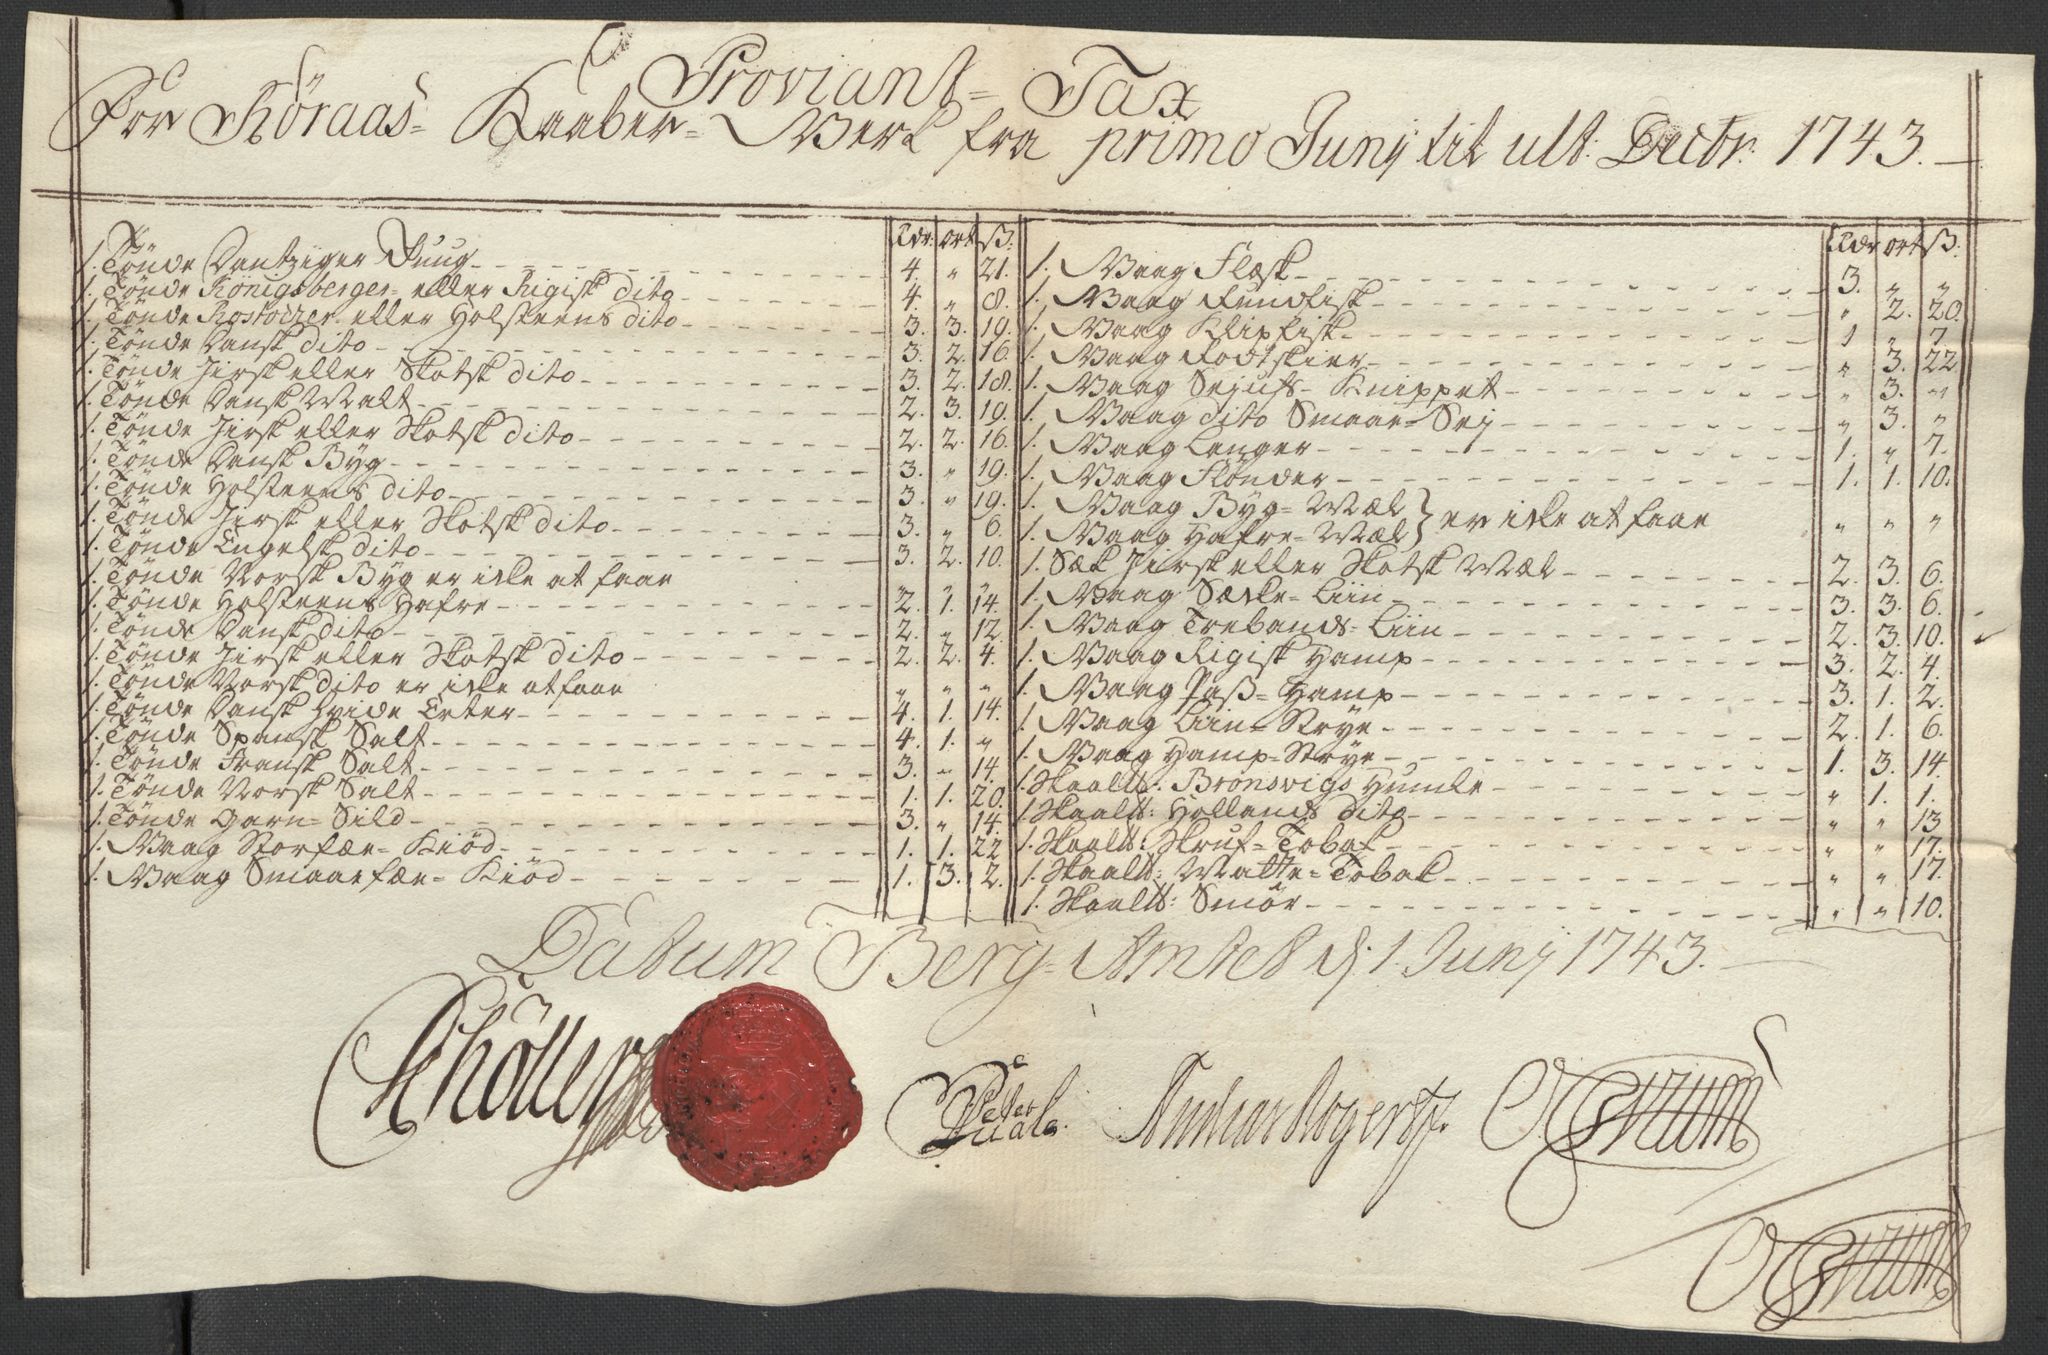 Proviant- Tax
For Röraas- Kaaber- Werk fra primo Junij til ult: Decbr: 1743.
Rdr. ort ß.
1. Tönde Dantziger Ruug 4. „ 21.
1. Tönde Königsberger- eller Rigisk dito 4. „ 8.
1. Tönde Rostocker eller Holsteens dito 3. 3. 19.
1. Tönde Dansk dito 3. 2. 16.
1. Tönde Jirsk eller Skotsk dito 3. 2. 18.
1. Tönde Dansk Malt 2. 3. 19.
1. Tönde Jirsk eller Skotsk dito 2. 2. 16.
1. Tönde Dansk Byg 3. „ 19.
1. Tönde Holsteens dito 3. „ 19.
1. Tönde Jirsk eller Skotsk dito 3. „ 6.
1. Tönde Engelsk dito 3. 2. 10.
1. Tönde Norsk Byg er icke at faae „ „ „
1. Tönde Holsteens Hafre 2. 1. 14.
1. Tönde Dansk dito 2. „ 12.
1. Tönde Jirsk eller Skotsk dito 2. 2. 4.
1. Tönde Norsk dito er icke at faae „ „ „
1. Tönde Dansk Hvide Erter 4. 1. 14.
1. Tönde Spansk Salt 4. 1. „
1. Tönde Fransk Salt 3. „ 14.
1. Tönde Norsk Salt 1. 1. 20.
1. Tönde Garn- Sild 3. „ 14.
1. Waag Storfæe- Kiöd 1. 1. 22
1. Waag Smaaefæe- Kiöd 1. 3. 2.
Rdr ort ß.
1. Waag Flæsk 3. „ „
1. Waag Rundfisk „ 2. 20.
1. Waag Klipfisk 1 „ 7
1. Waag Rodtskier „ 3. 22
1. Waag Sejufs- Knippet „ 3. „
1. Waag dito Smaae- Sej „ 3. „
1. Waag Langer 1. „ 7.
1. Waag Flönder 1. 1. 10.
1. Waag Byg- Mæl
1. Waag Hafre- Mæl } er icke at faae „ „ „
1. Sæk Jirsk eller Skotsk Mæl 2. 3. 6.
1. Waag Særke- Liin 3. 3. 6.
1. Waag Trebands- Liin 2. 3. 10.
1. Waag Rigisk Hamp 3. 2. 4.
1. Waag Paß- Hamp 3. 1. 2.
1. Waag Liin- Strye 2. 1. 6.
1. Waag Hamp- Strye 1. 3. 14.
1. Skaaltt: Bronsvigs Humle „ 1. 1.
1. Skaaltt: Hollands dito „ „ 13
1. Skaaltt: Skruf- Tobak „ „ 17.
1. Skaaltt: Matte- Tobak „ „ 17.
1. Skaaltt: Smör „ „ 10.
Datum Berg- Amtet d: 1. Junij 1743.
Schöller
Peter